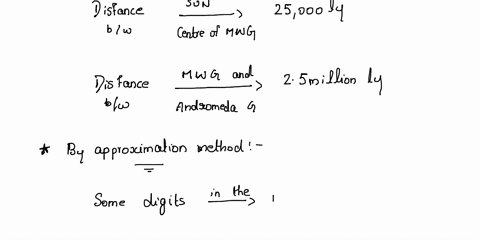 Distance SUN 25,000 ly
b/w Centre of MWG
Distance MWG and 2.5 million ly
b/w Andromeda G
* By approximation method :-
Some digits in the